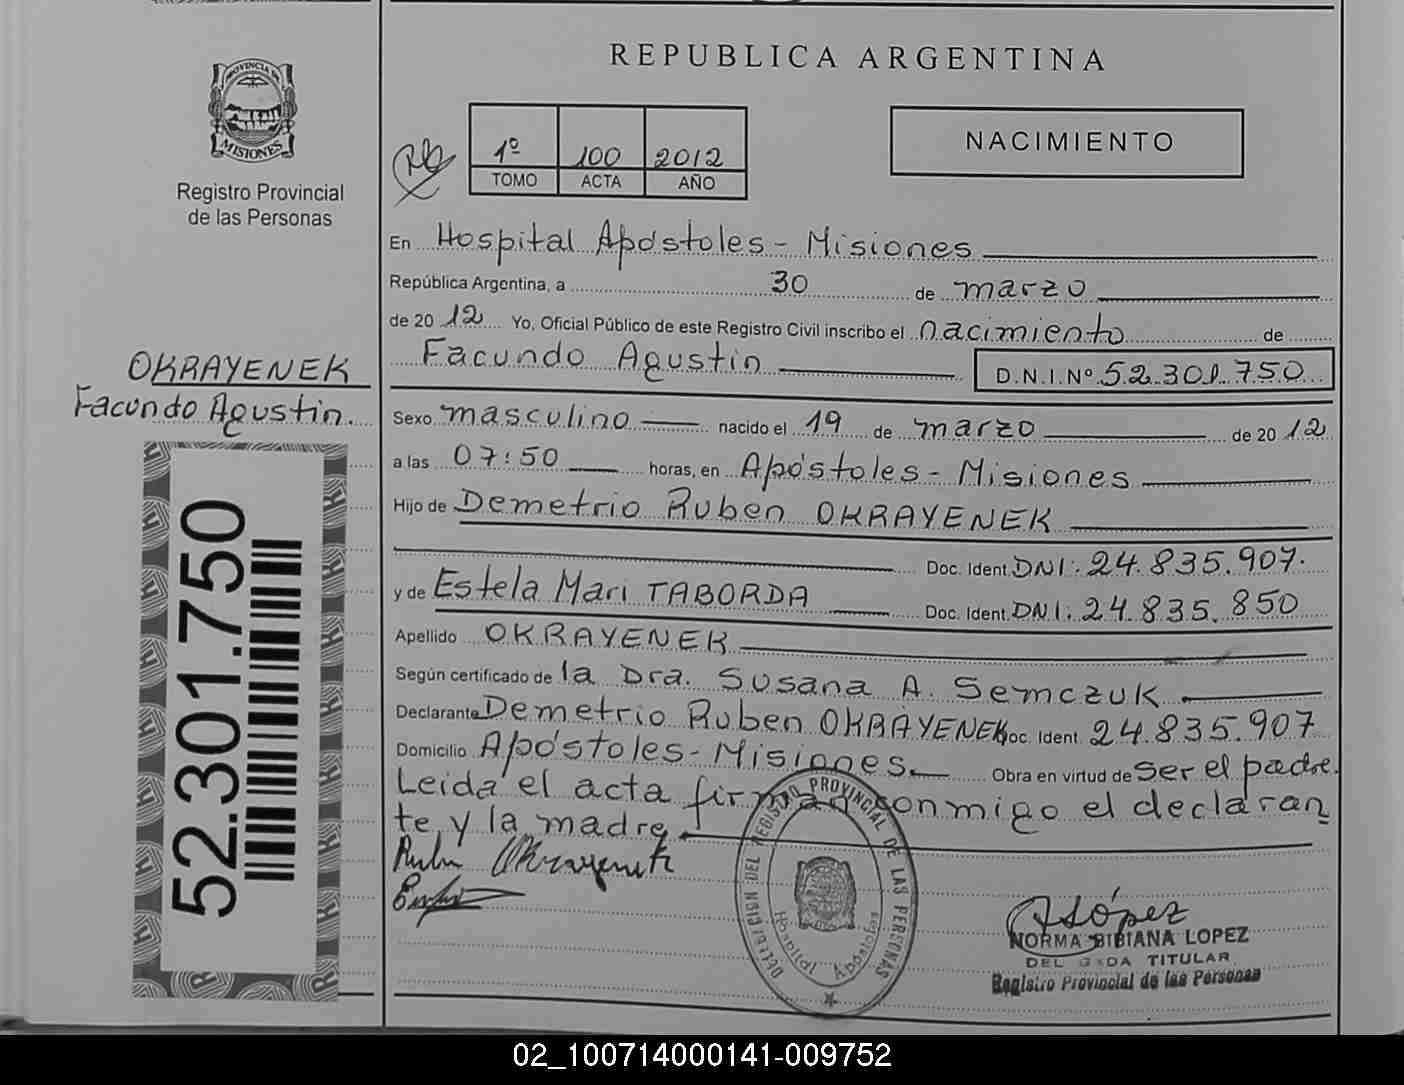 REPUBLICA ARGENTINA
PROVINCIA DE
MISIONES
Registro Provincial
de las Personas
1º 100 2012
TOMO ACTA AÑO
NACIMIENTO
En Hospital Apóstoles - Misiones
República Argentina, a 30 de marzo
de 2012 Yo, Oficial Público de este Registro Civil inscribo el nacimiento de
Facundo Agustin D.N.I.Nº 52.301.750
OKRAYENEK
Facundo Agustin.
Sexo masculino nacido el 19 de marzo de 2012
a las 07:50 horas, en Apóstoles - Misiones
Hijo de Demetrio Ruben OKRAYENEK
Doc. Ident. DNI: 24.835.907.
y de Estela Mari TABORDA Doc. Ident. DNI. 24.835.850
Apellido OKRAYENEK
Según certificado de la Dra. Susana A. Semczuk.
Declarante Demetrio Ruben OKRAYENEK Doc. Ident. 24.835.907
Domicilio Apóstoles - Misiones. Obra en virtud de ser el padre.
Leida el acta firman conmigo el declaran
te, y la madre.
52.301.750
Ruben Okrayenek
DELEGACION DEL REGISTRO PROVINCIAL DE LAS PERSONAS
Hospital Apóstoles
López
NORMA BIBIANA LOPEZ
TITULAR
Registro Provincial de las Personas
02_100714000141-009752